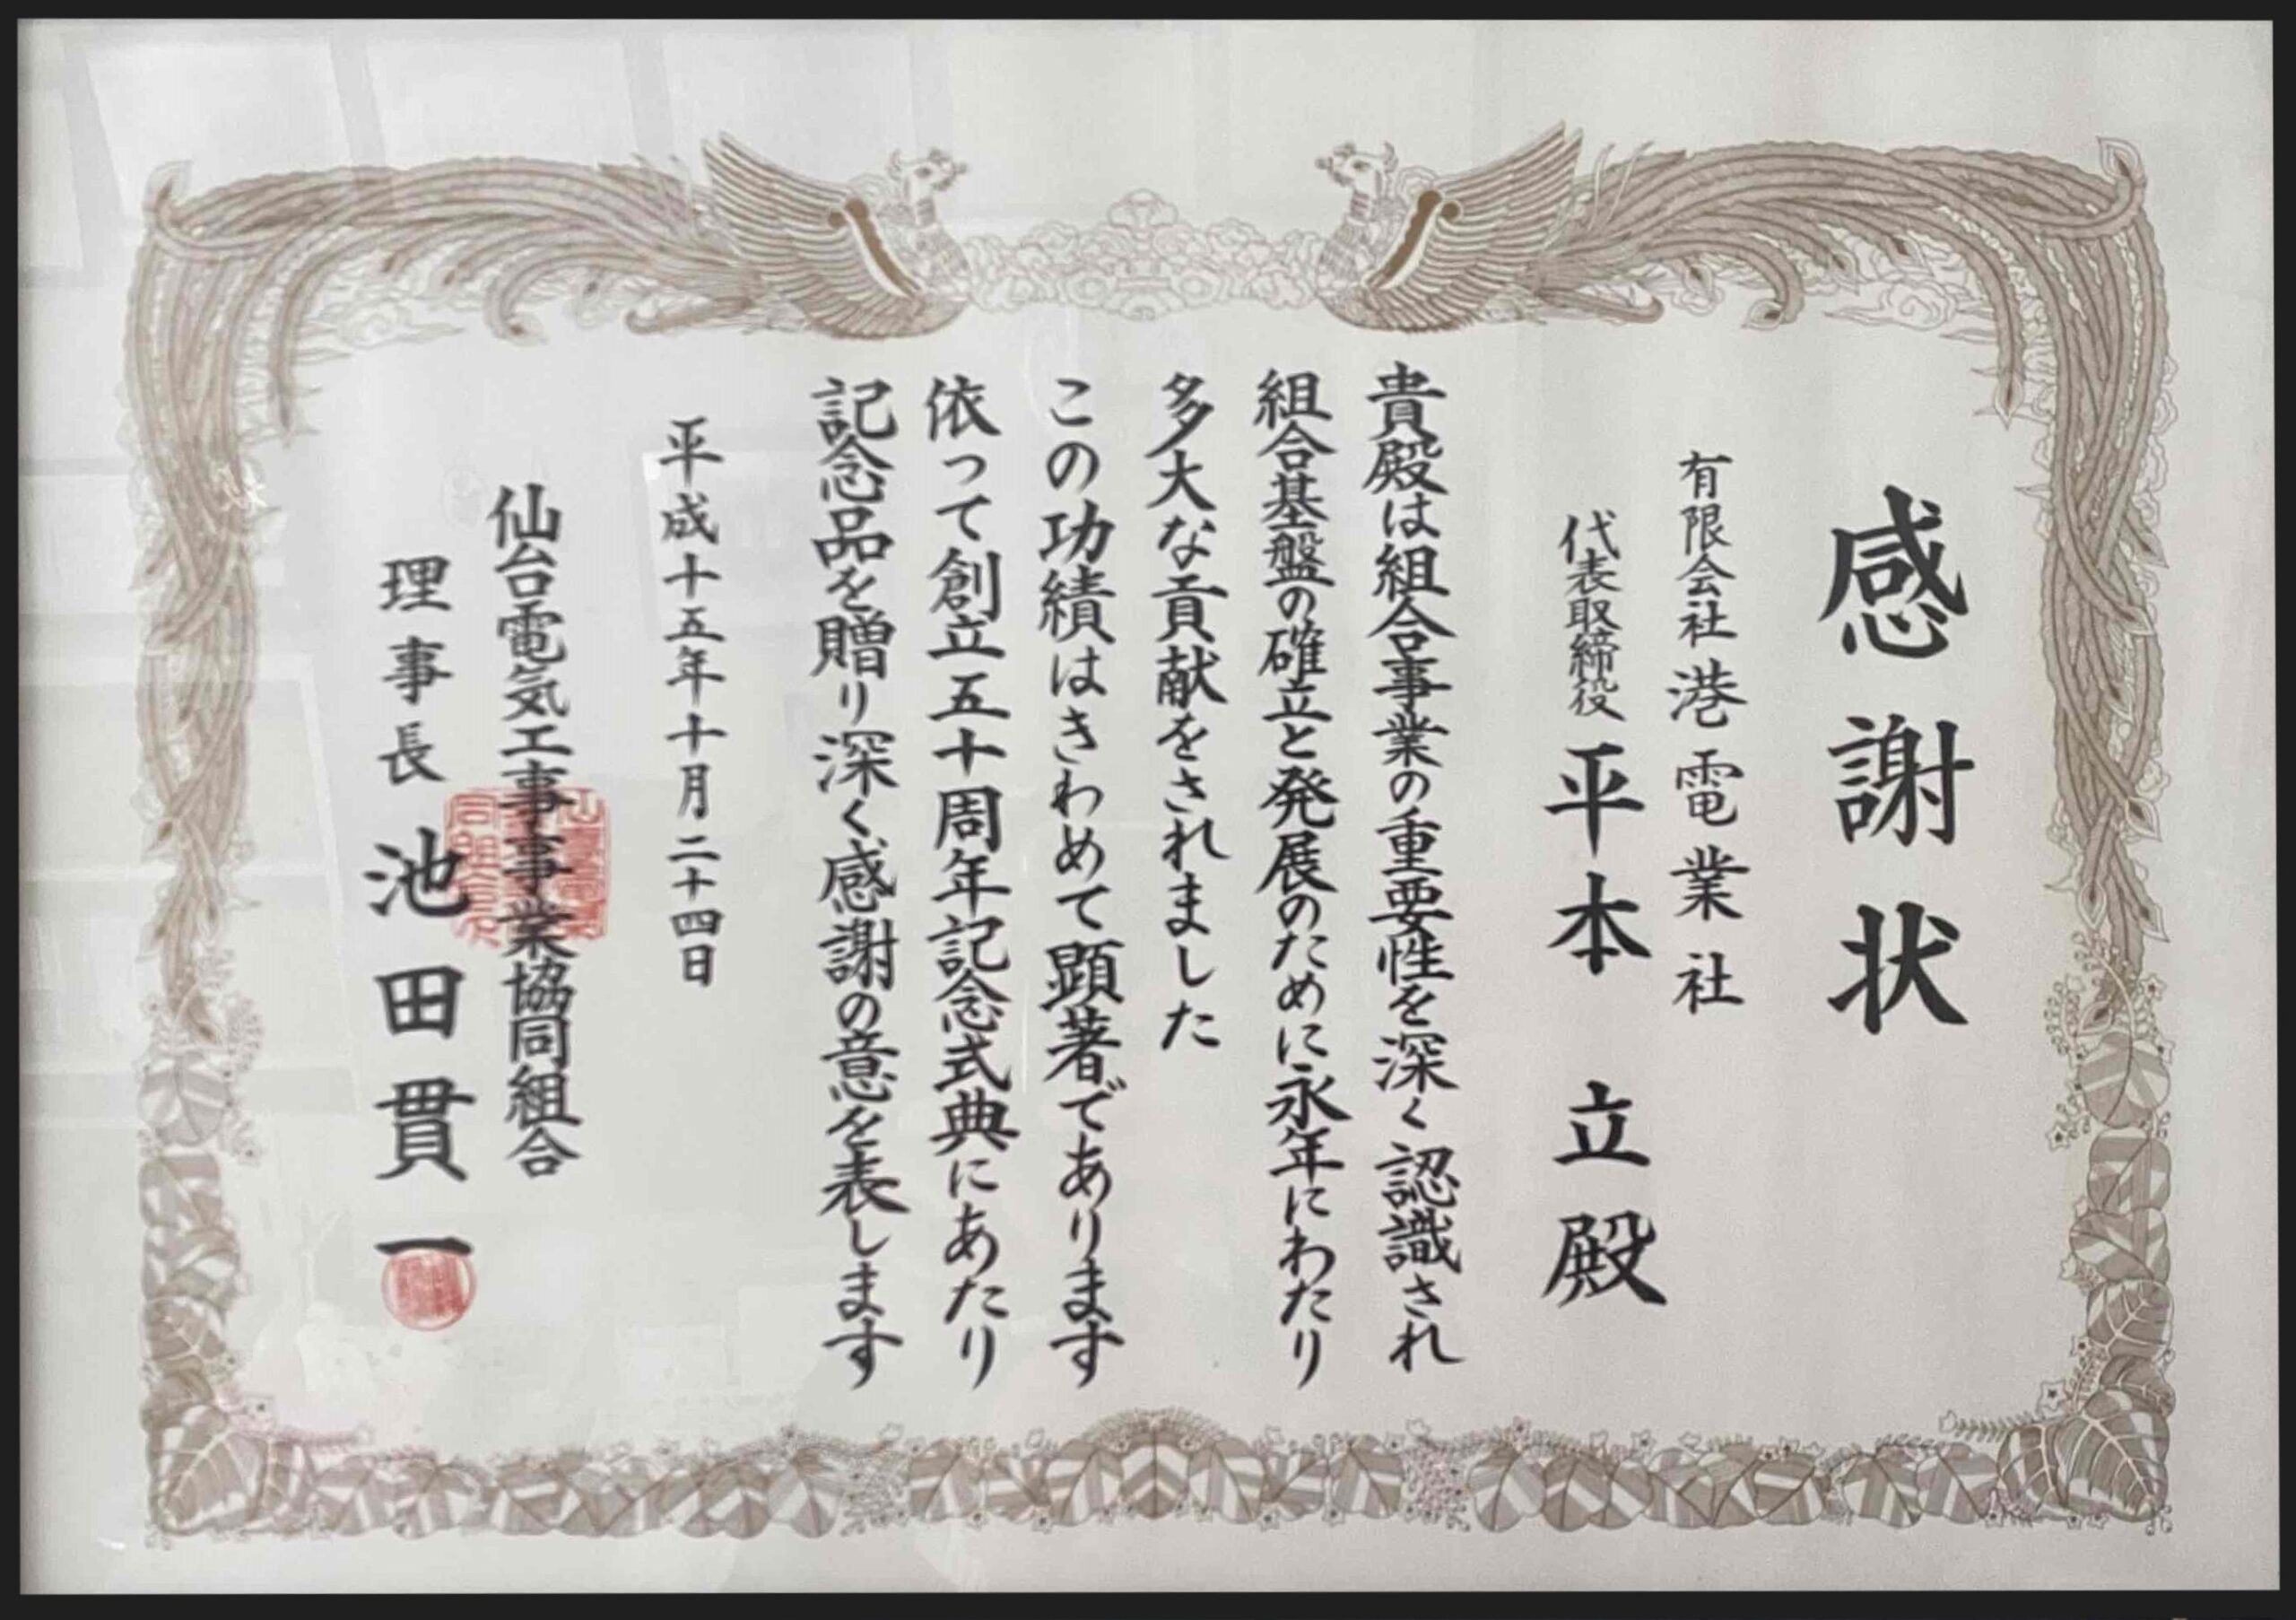 感謝状
有限会社 港電業社
代表取締役 平本 立 殿
貴殿は組合事業の重要性を深く認識され
組合基盤の確立と発展のために永年にわたり
多大な貢献をされました
この功績はきわめて顕著であります
依って創立五十周年記念式典にあたり
記念品を贈り深く感謝の意を表します
平成十五年十月二十四日
仙台電気工事事業協同組合
理事長 池田貫一